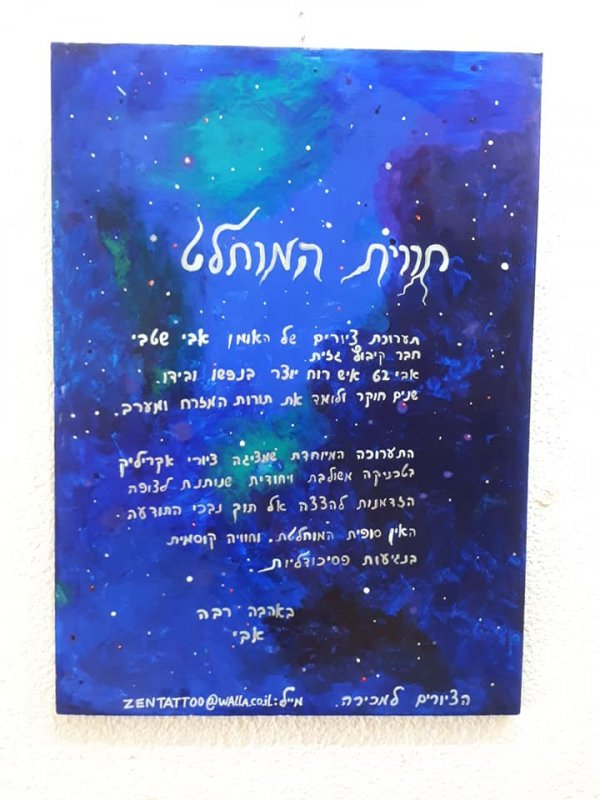 חווית המוחלט
תערוכת ציורים של האומן אבי שטבי
חבר קיבוץ גזית.
אבי 62 איש רוח יוצר בנפשו ובידו.
שנים חוקר ולומד את תורות המזרח ומערב.
התערוכה המיוחדת שמציגה ציורי אקריליק
בטכניקה משולבת ויחודית שנותנת לצופה
הזדמנות להצצה אל תוך נבכי התודעה
האין סופית המוחלטת. וחוויה קוסמית
בנגיעות פסיכודליות.
באהבה רבה
אבי
הציורים למכירה. מייל: ZENTATTOO@WALLA.co.il